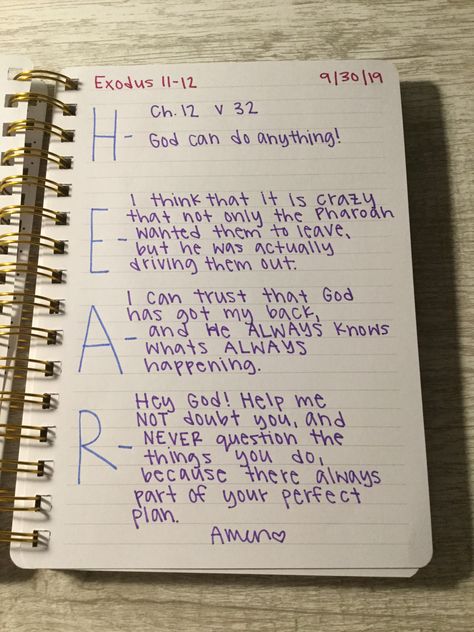 Exodus 11-12 9/30/19
Ch. 12 v 32
H - God can do anything!
I think that it is crazy
that not only the Pharoah
E - wanted them to leave,
but he was actually
driving them out.
I can trust that God
has got my back,
A - and He ALWAYS knows
whats ALWAYS
happening.
Hey God! Help me
NOT doubt you, and
R - NEVER question the
things you do,
because there always
part of your perfect
plan.
Amen♡